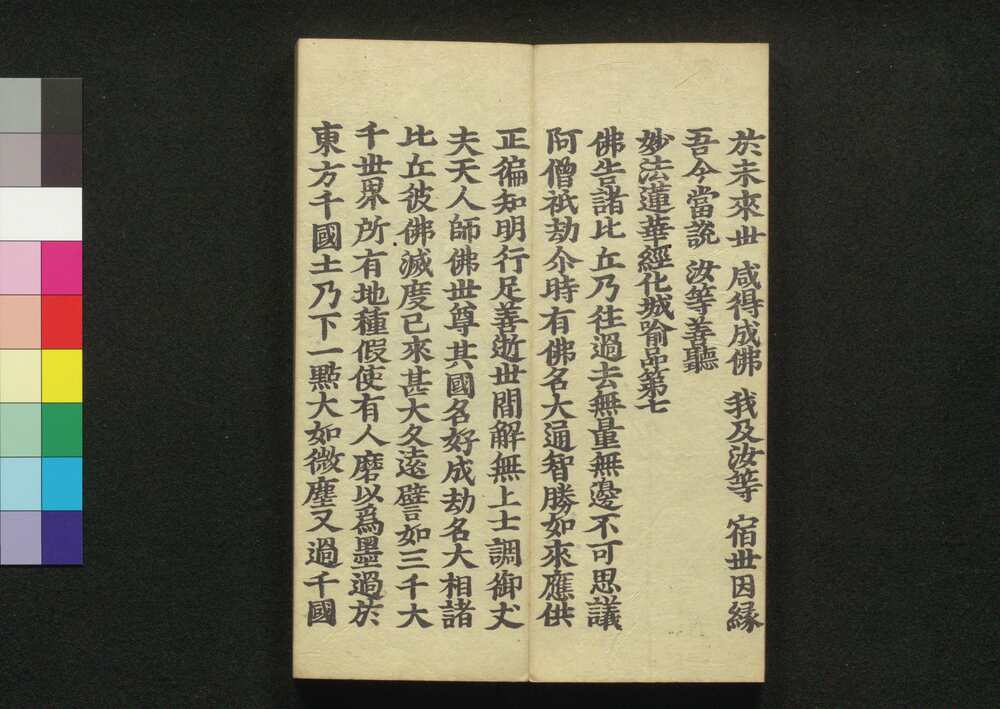 於未來世 咸得成佛 我及汝等 宿世因縁
吾今當說 汝等善聽
妙法蓮華經化城喻品第七
佛告諸比丘乃往過去無量無邊不可思議
阿僧祇劫尒時有佛名大通智勝如來應供
正徧知明行足善逝世間解無上士調御丈
夫天人師佛世尊其國名好成劫名大相諸
比丘彼佛滅度已來甚大久遠譬如三千大
千世界所有地種假使有人磨以爲墨過於
東方千國土乃下一點大如微塵又過千國